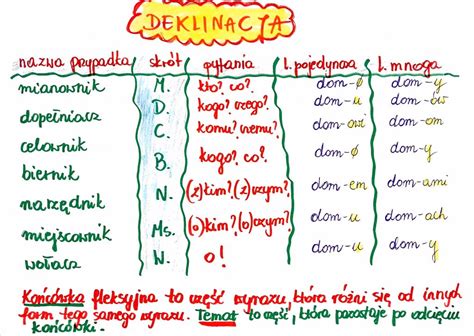 DEKLINACJA
nazwa przypadka skrót pytania l. pojedyncza l. mnoga
mianownik M. kto?, co? dom-ø dom-y
dopełniacz D. kogo? czego? dom-u dom-ów
celownik C. komu? czemu? dom-owi dom-om
biernik B. kogo?, co? dom-ø dom-y
narzędnik N. (z)kim?, (z)czym? dom-em dom-ami
miejscownik Ms. (o)kim?, (o)czym? dom-u dom-ach
wołacz W. o! dom-u dom-y
Końcówka fleksyjna to część wyrazu, która różni się od innych
form tego samego wyrazu. Temat to część, która pozostaje po odcięciu
końcówki.